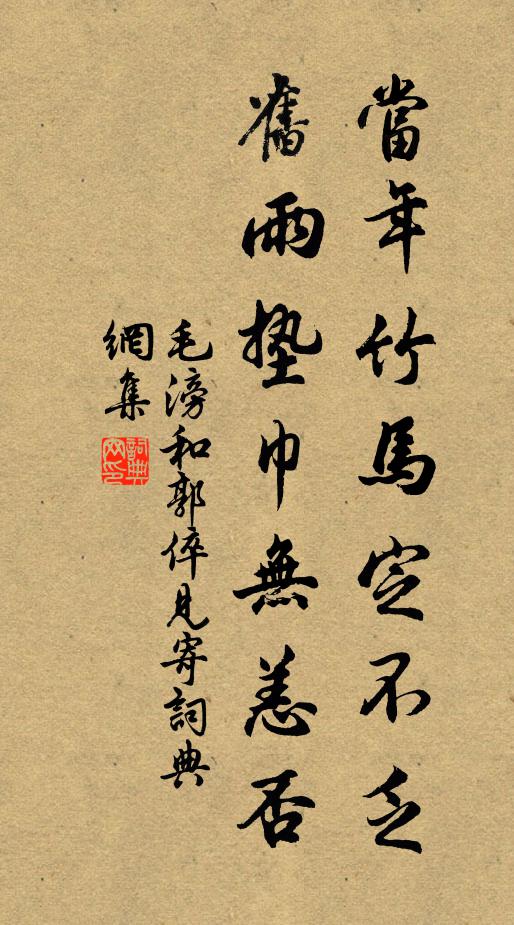 當年竹馬定不乏
舊雨墊巾無恙否
毛滂和郭倅見寄詞典
網集
詞典網印